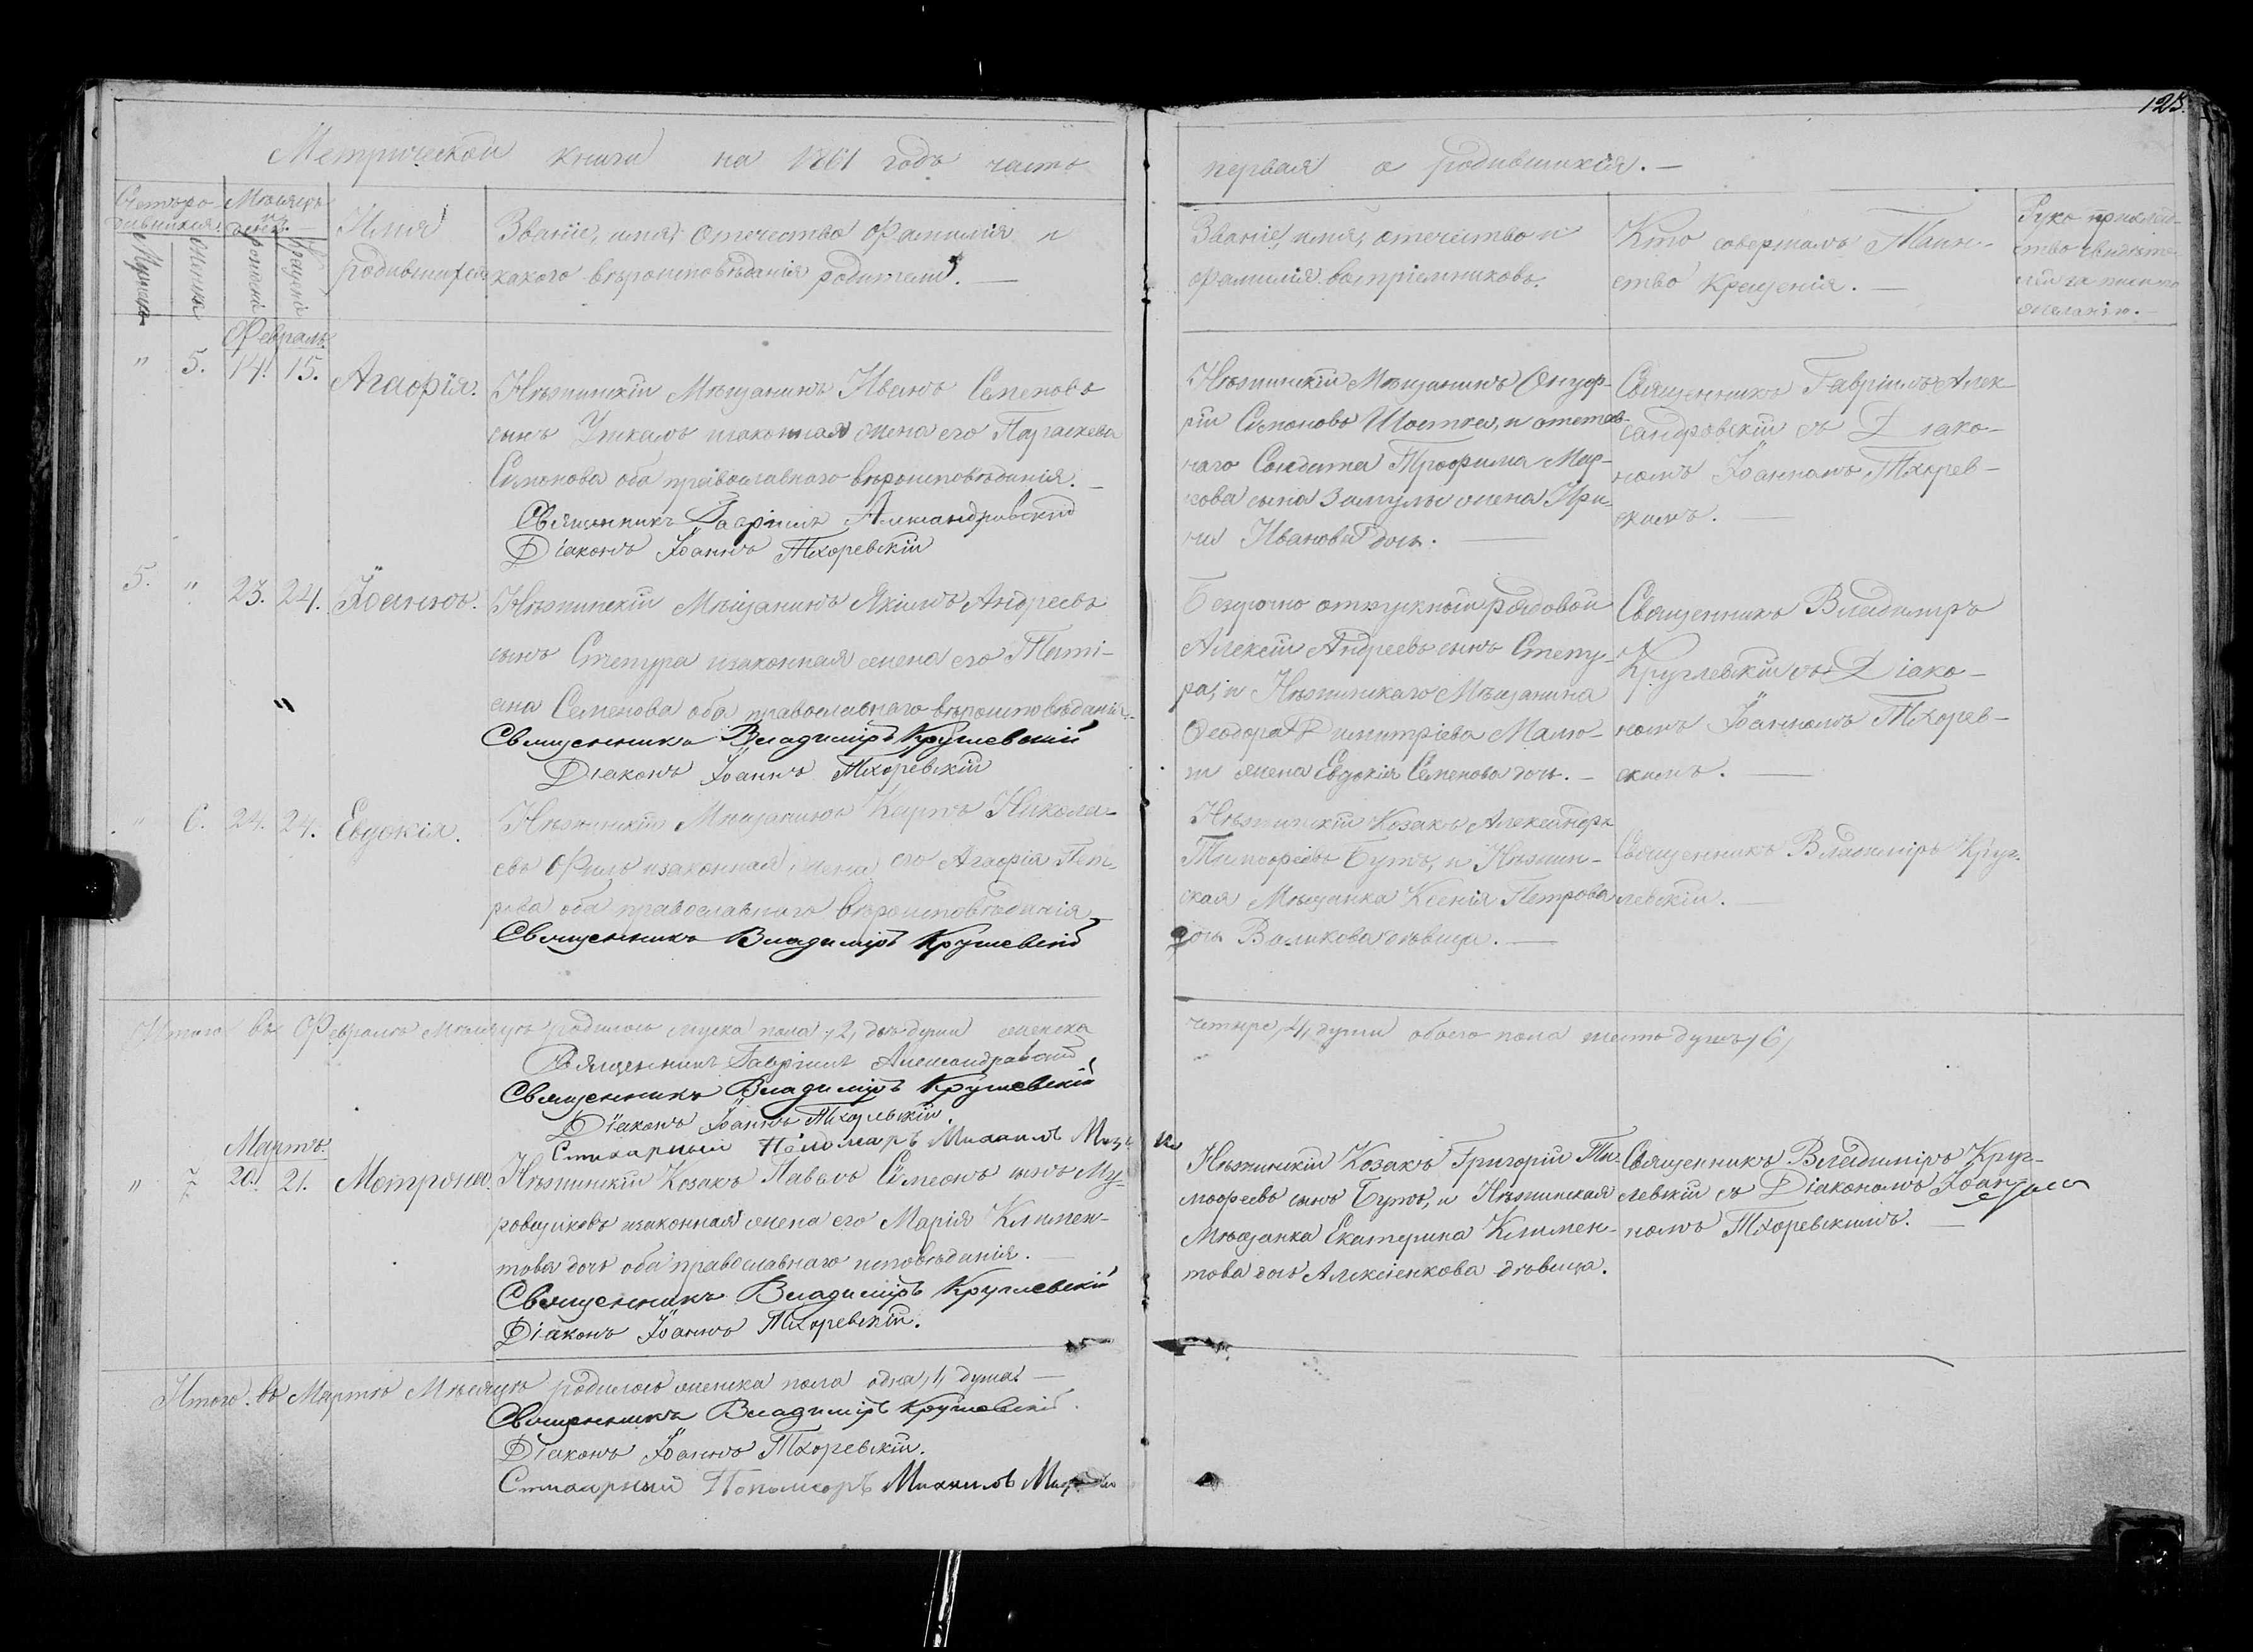 125.
Метрической книги на 1861 годъ часть
первая о родившихся. —
Счетъ ро-
дившихся.
Мѣсяцъ
и
день.
Мужеска
Женска
рожденія
Крещенія
Имя
родившихся
Званіе, имя, отечество фамилія и
какого вѣроисповѣданія родители. —
Званіе, имя, отечество и
фамилія воспріемниковъ.
Кто совершалъ Таин-
ство Крещенія. —
Руко приклад-
ство свидѣте-
лей
желанію. —
Февраль.
" 5. 14. 15. Агафія.
Нѣжинскій Мѣщанинъ Иванъ Семеновъ
сынъ изаконная жена его Параскева
Симонова оба православнаго вѣроисповѣданія. —
Священникъ Гавріилъ Александровскій
Діаконъ Іоаннъ Тхоревскій
Нѣжинскій Мѣщанинъ Онуф-
рій Симоновъ Шостка, и отстав-
наго Солдата Трофима Мар-
кова сына жена Ири-
на Иванова дочь. —
Священникъ Гавріилъ Алек-
сандровскій съ Діако-
номъ Іоанномъ Тхорев-
скимъ. —
5. " 23. 24. Іоаннъ.
Нѣжинскій Мѣщанинъ Якимъ Андреевъ
сынъ Степура изаконная жена его Тати-
яна Семенова оба православнаго вѣроисповѣданія. —
Священникъ Владиміръ Круглевскій
Діаконъ Іоаннъ Тхоревскій
Безсрочно отпускной рядовой
Алексій Андреевъ сынъ Степу-
ра, и Нѣжинскаго Мѣщанина
Феодора Димитріева
жена Евдокія Семенова дочь. —
Священникъ Владиміръ
Круглевскій съ Діако-
номъ Іоанномъ Тхорев-
скимъ. —
" 6. 24. 24. Евдокія.
Нѣжинскій Мѣщанинъ Карпъ Никола-
евъ изаконная жена его Агафія Пет-
рова оба православнаго вѣроисповѣданія
Священникъ Владиміръ Круглевскій
Нѣжинскій Козакъ Александръ
Тимофеевъ Бутъ, и Нѣжин-
ская Мѣщанка Ксенія Петрова
дочь Воликова дѣвица. —
Священникъ Владиміръ Круг-
левскій. —
Итого въ Февралѣ Мѣсяцѣ родилось мужска пола /2/ двѣ души женска
четыре /4/ души обоего пола шесть душъ /6/
Священникъ Гавріилъ Александровскій
Священникъ Владиміръ Круглевскій
Діаконъ Іоаннъ Тхоревскій.
Стихарный Пономарь Михаилъ
Мартъ.
" 7. 20. 21. Матрона.
Нѣжинскій Козакъ Павелъ Симеонъ сынъ Му-
ровщиковъ изаконная жена его Марія Климен-
това дочь оба православнаго исповѣданія. —
Священникъ Владиміръ Круглевскій
Діаконъ Іоаннъ Тхоревскій.
Нѣжинскій Козакъ Григорій Ти-
мофеевъ сынъ Бутъ, и Нѣжинская
Мѣщанка Екатерина Климен-
това дочь Алексіенкова дѣвица.
Священникъ Владиміръ Круг-
левскій съ Діакономъ Іоан-
номъ Тхоревскимъ. —
Итого въ Мартѣ Мѣсяцѣ родилось женска пола одна /1/ душа. —
Священникъ Владиміръ Круглевскій.
Діаконъ Іоаннъ Тхоревскій.
Стихарный Пономарь Михаилъ